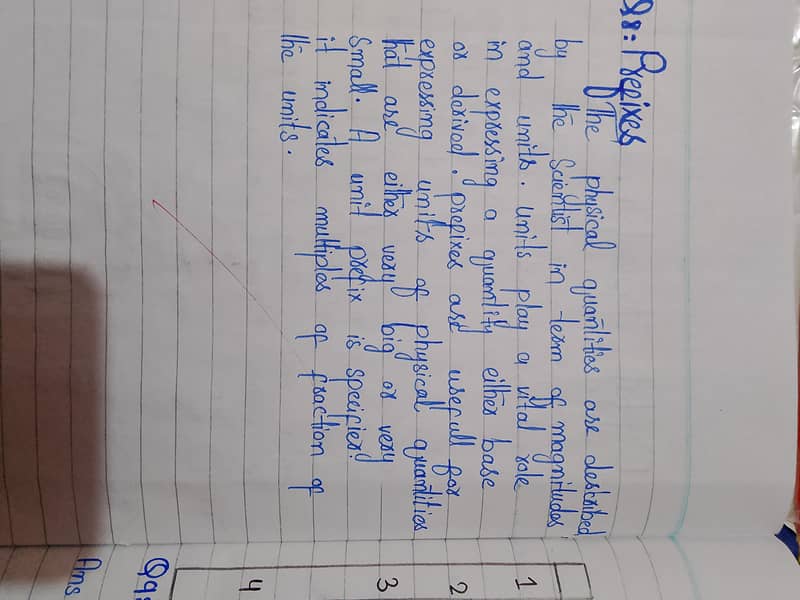 Q8: Prefixes
The physical quantities are described
by the Scientist in term of magnitudes
and units. units play a vital role
in expressing a quantity either base
or derived. prefixes are usefull for
expressing units of physical quantities
that are either very big or very
small. A unit prefix is specifier.
it indicates multiples of fraction of
the units.
1
2
3
4
Q9:
Ans